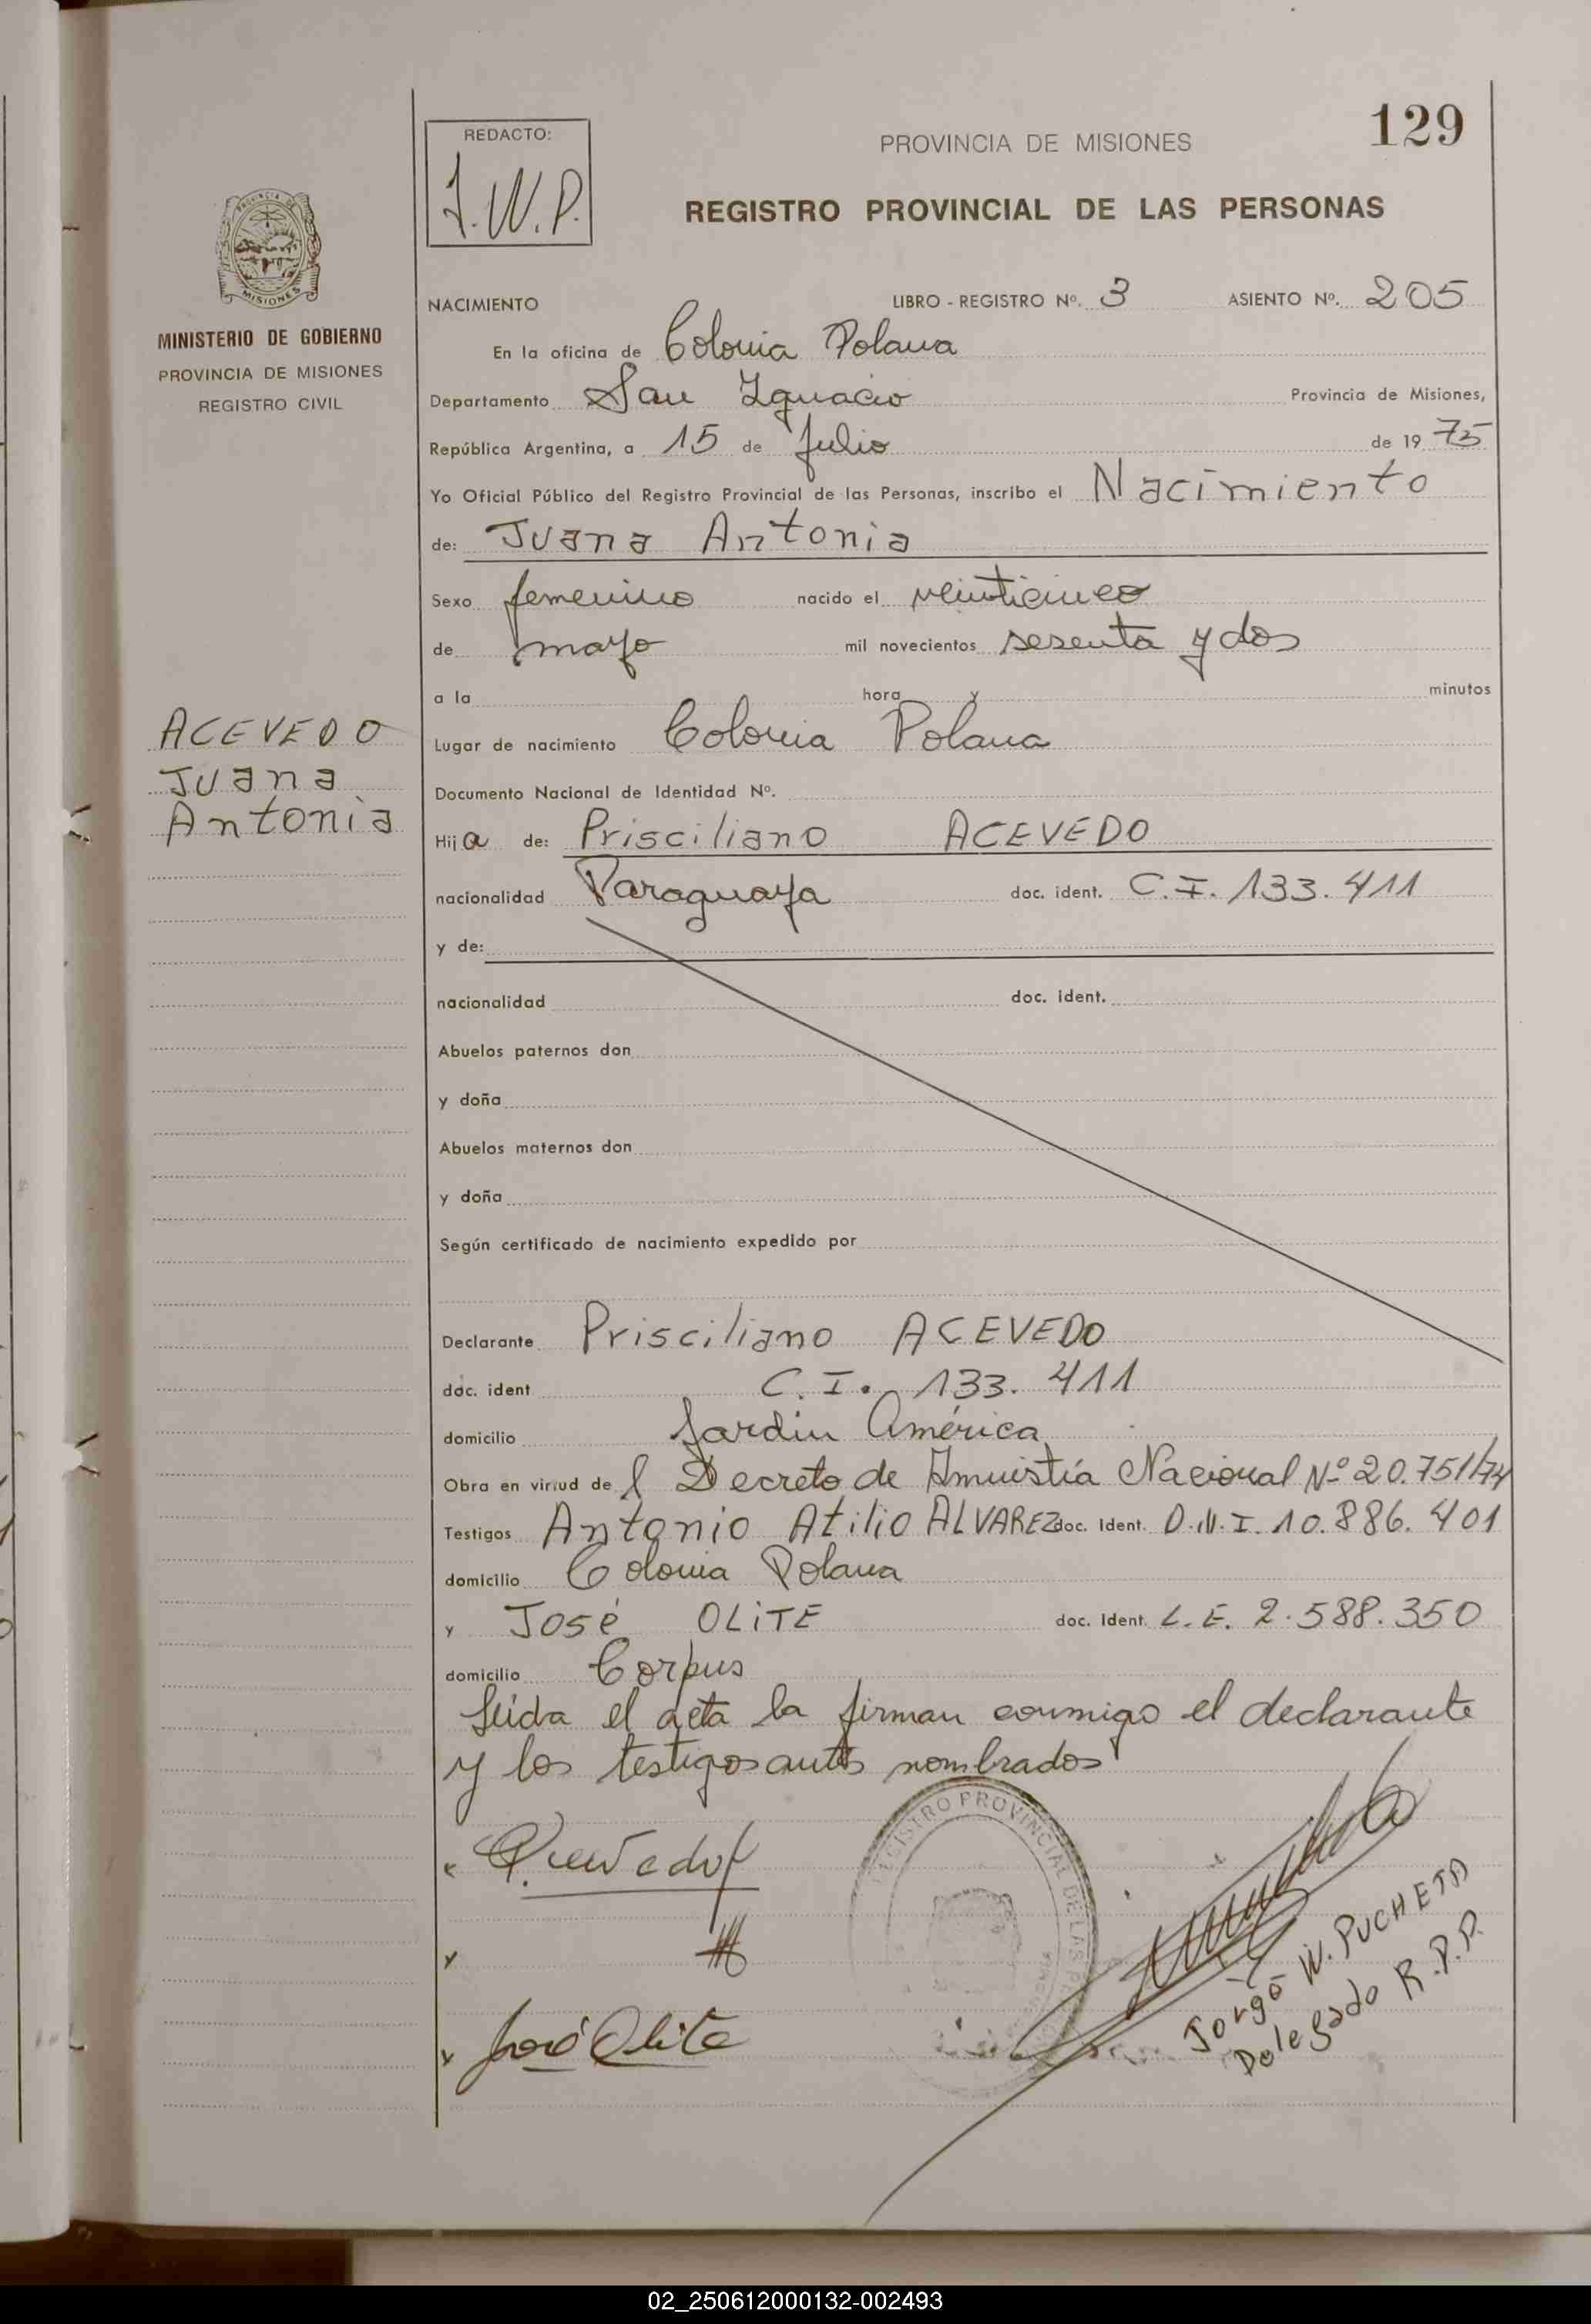 129
REDACTO:
J.W.P.
PROVINCIA DE MISIONES
REGISTRO PROVINCIAL DE LAS PERSONAS
MISIONES
MINISTERIO DE GOBIERNO
PROVINCIA DE MISIONES
REGISTRO CIVIL
NACIMIENTO LIBRO - REGISTRO Nº. 3 ASIENTO Nº. 205
En la oficina de Colonia Polana
Departamento San Ignacio Provincia de Misiones,
República Argentina, a 15 de Julio de 19 75
Yo Oficial Público del Registro Provincial de las Personas, inscribo el Nacimiento
de: Juana Antonia
Sexo femenino nacido el veinticinco
de mayo mil novecientos sesenta y dos
a la hora y minutos
ACEVEDO
Juana
Antonia
Lugar de nacimiento Colonia Polana
Documento Nacional de Identidad Nº.
Hija de: Prisciliano ACEVEDO
nacionalidad Paraguaya doc. ident. C.I. 133.411
y de:
nacionalidad doc. ident.
Abuelos paternos don
y doña
Abuelos maternos don
y doña
Según certificado de nacimiento expedido por
Declarante Prisciliano ACEVEDO
doc. ident C.I. 133.411
domicilio Jardín América
Obra en virtud de l Decreto de Amnistía Nacional Nº 20.751/74
Testigos Antonio Atilio ALVAREZ doc. Ident. D.N.I. 10.886.401
domicilio Colonia Polana
y José OLiTE doc. Ident. L.E. 2.588.350
domicilio Corpus
Leída el acta la firman conmigo el declarante
y los testigos antes nombrados
REGISTRO PROVINCIAL DE LAS
José Olite
Jorge W. PUCHETA
Delegado R.P.P.
02_250612000132-002493